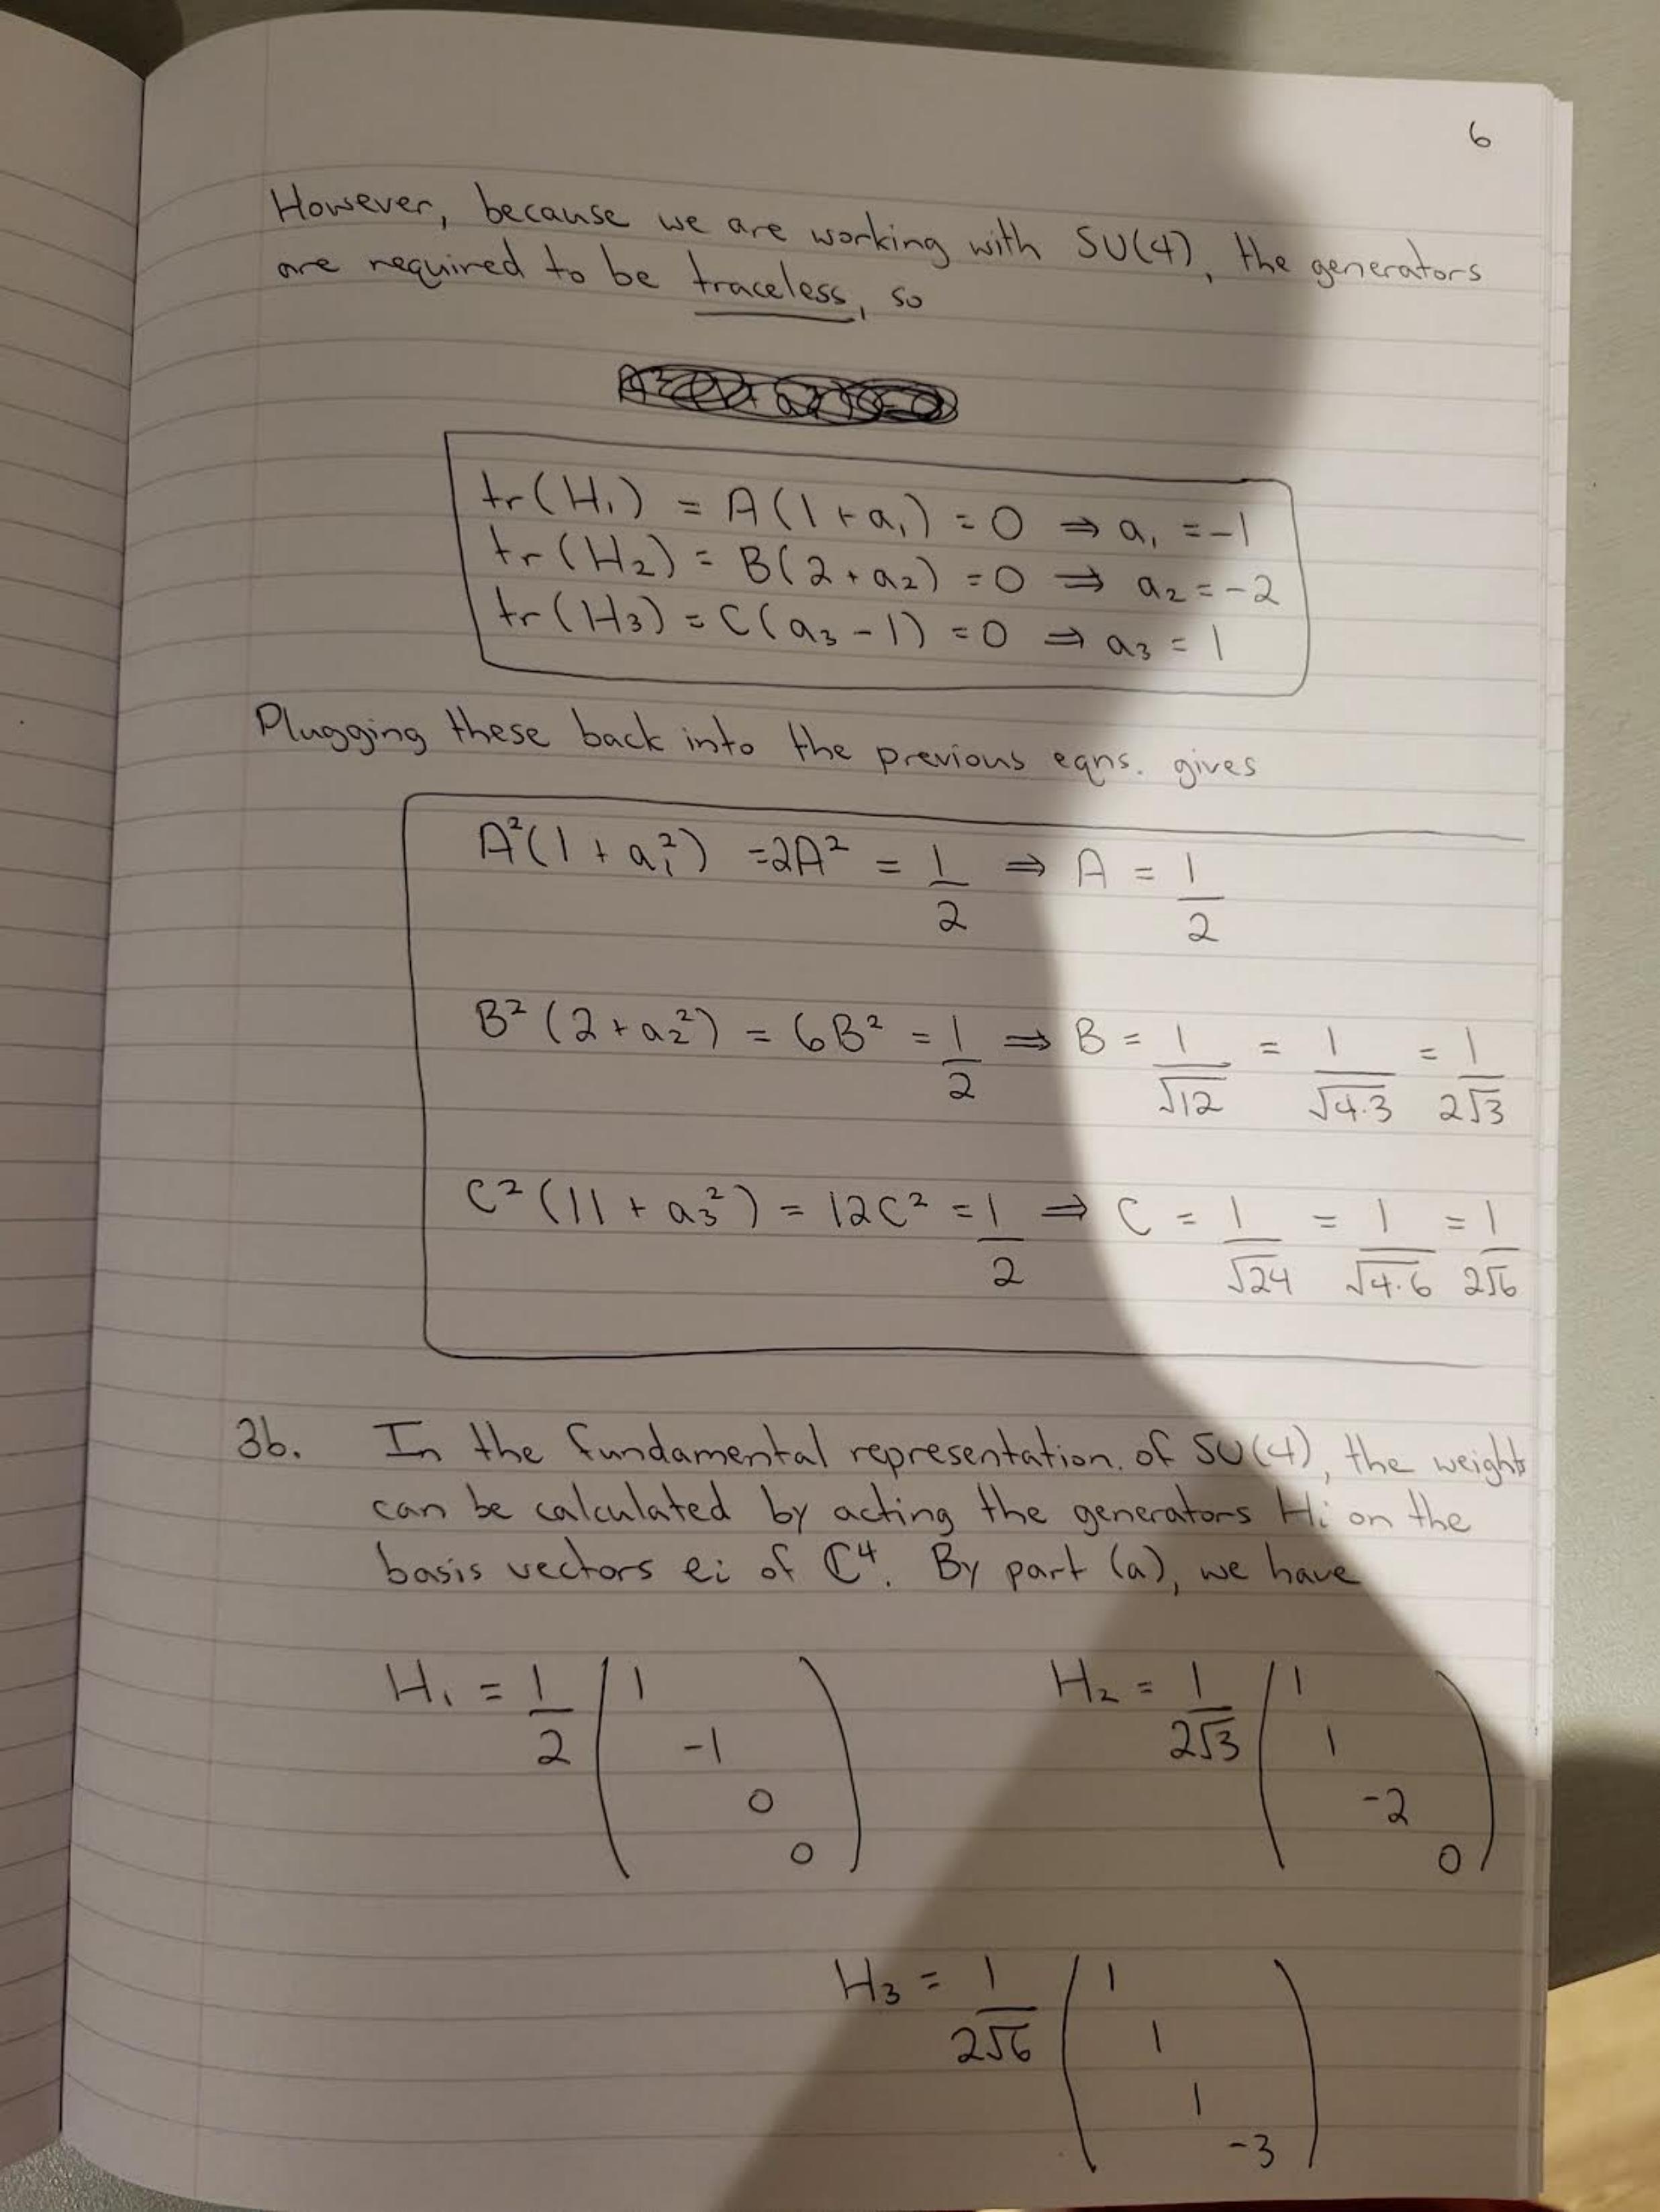 6
However, because we are working with SU(4), the generators
are required to be traceless, so
tr(H₁) = A(1+a₁) = 0 ⇒ a₁ = -1
tr(H₂) = B(2+a₂) = 0 ⇒ a₂ = -2
tr(H₃) = C(a₃-1) = 0 ⇒ a₃ = 1
Plugging these back into the previous eqns. gives
A²(1+a₁²) = 2A² = 1/2 ⇒ A = 1/2
B²(2+a₂²) = 6B² = 1/2 ⇒ B = 1/√12 = 1/√4·3 = 1/2√3
C²(11+a₃²) = 12C² = 1/2 ⇒ C = 1/√24 = 1/√4·6 = 1/2√6
3b. In the fundamental representation. of SU(4), the weights
can be calculated by acting the generators Hi on the
basis vectors ei of ℂ⁴. By part (a), we have
H₁ = 1/2 ( 1 -1 0 0 ) H₂ = 1/2√3 ( 1 1 -2 0 )
H₃ = 1/2√6 ( 1 1 1 -3 )